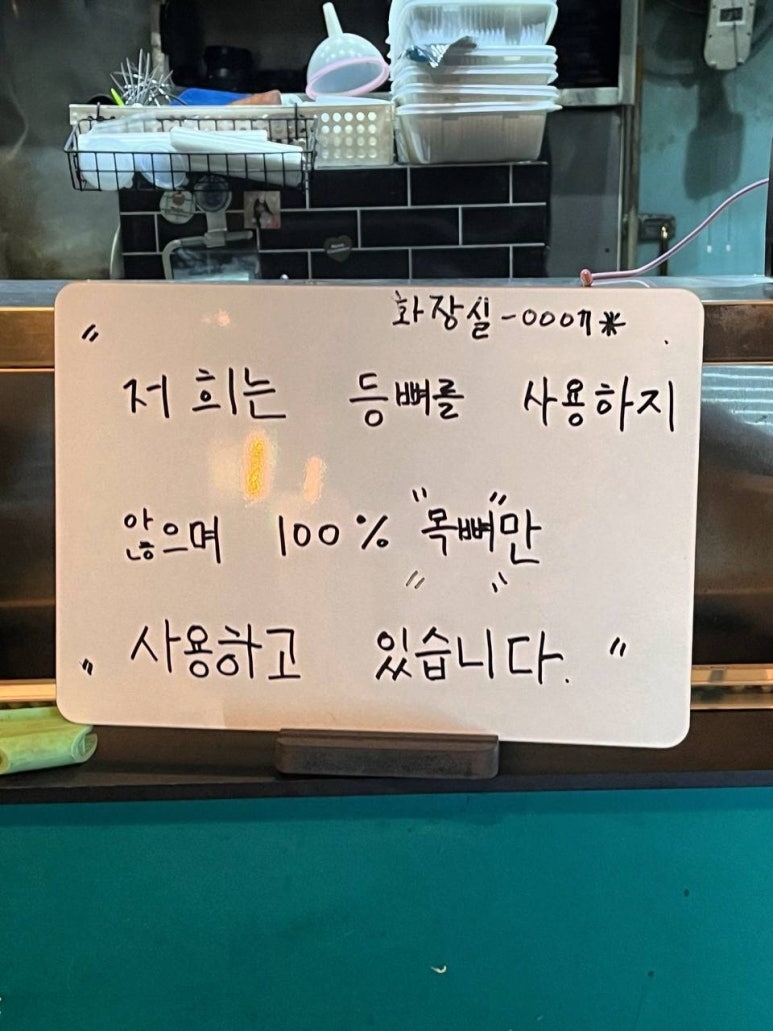 화장실-0007*
" 저희는 등뼈를 사용하지
않으며 100% "목뼈"만
" 사용하고 있습니다. "